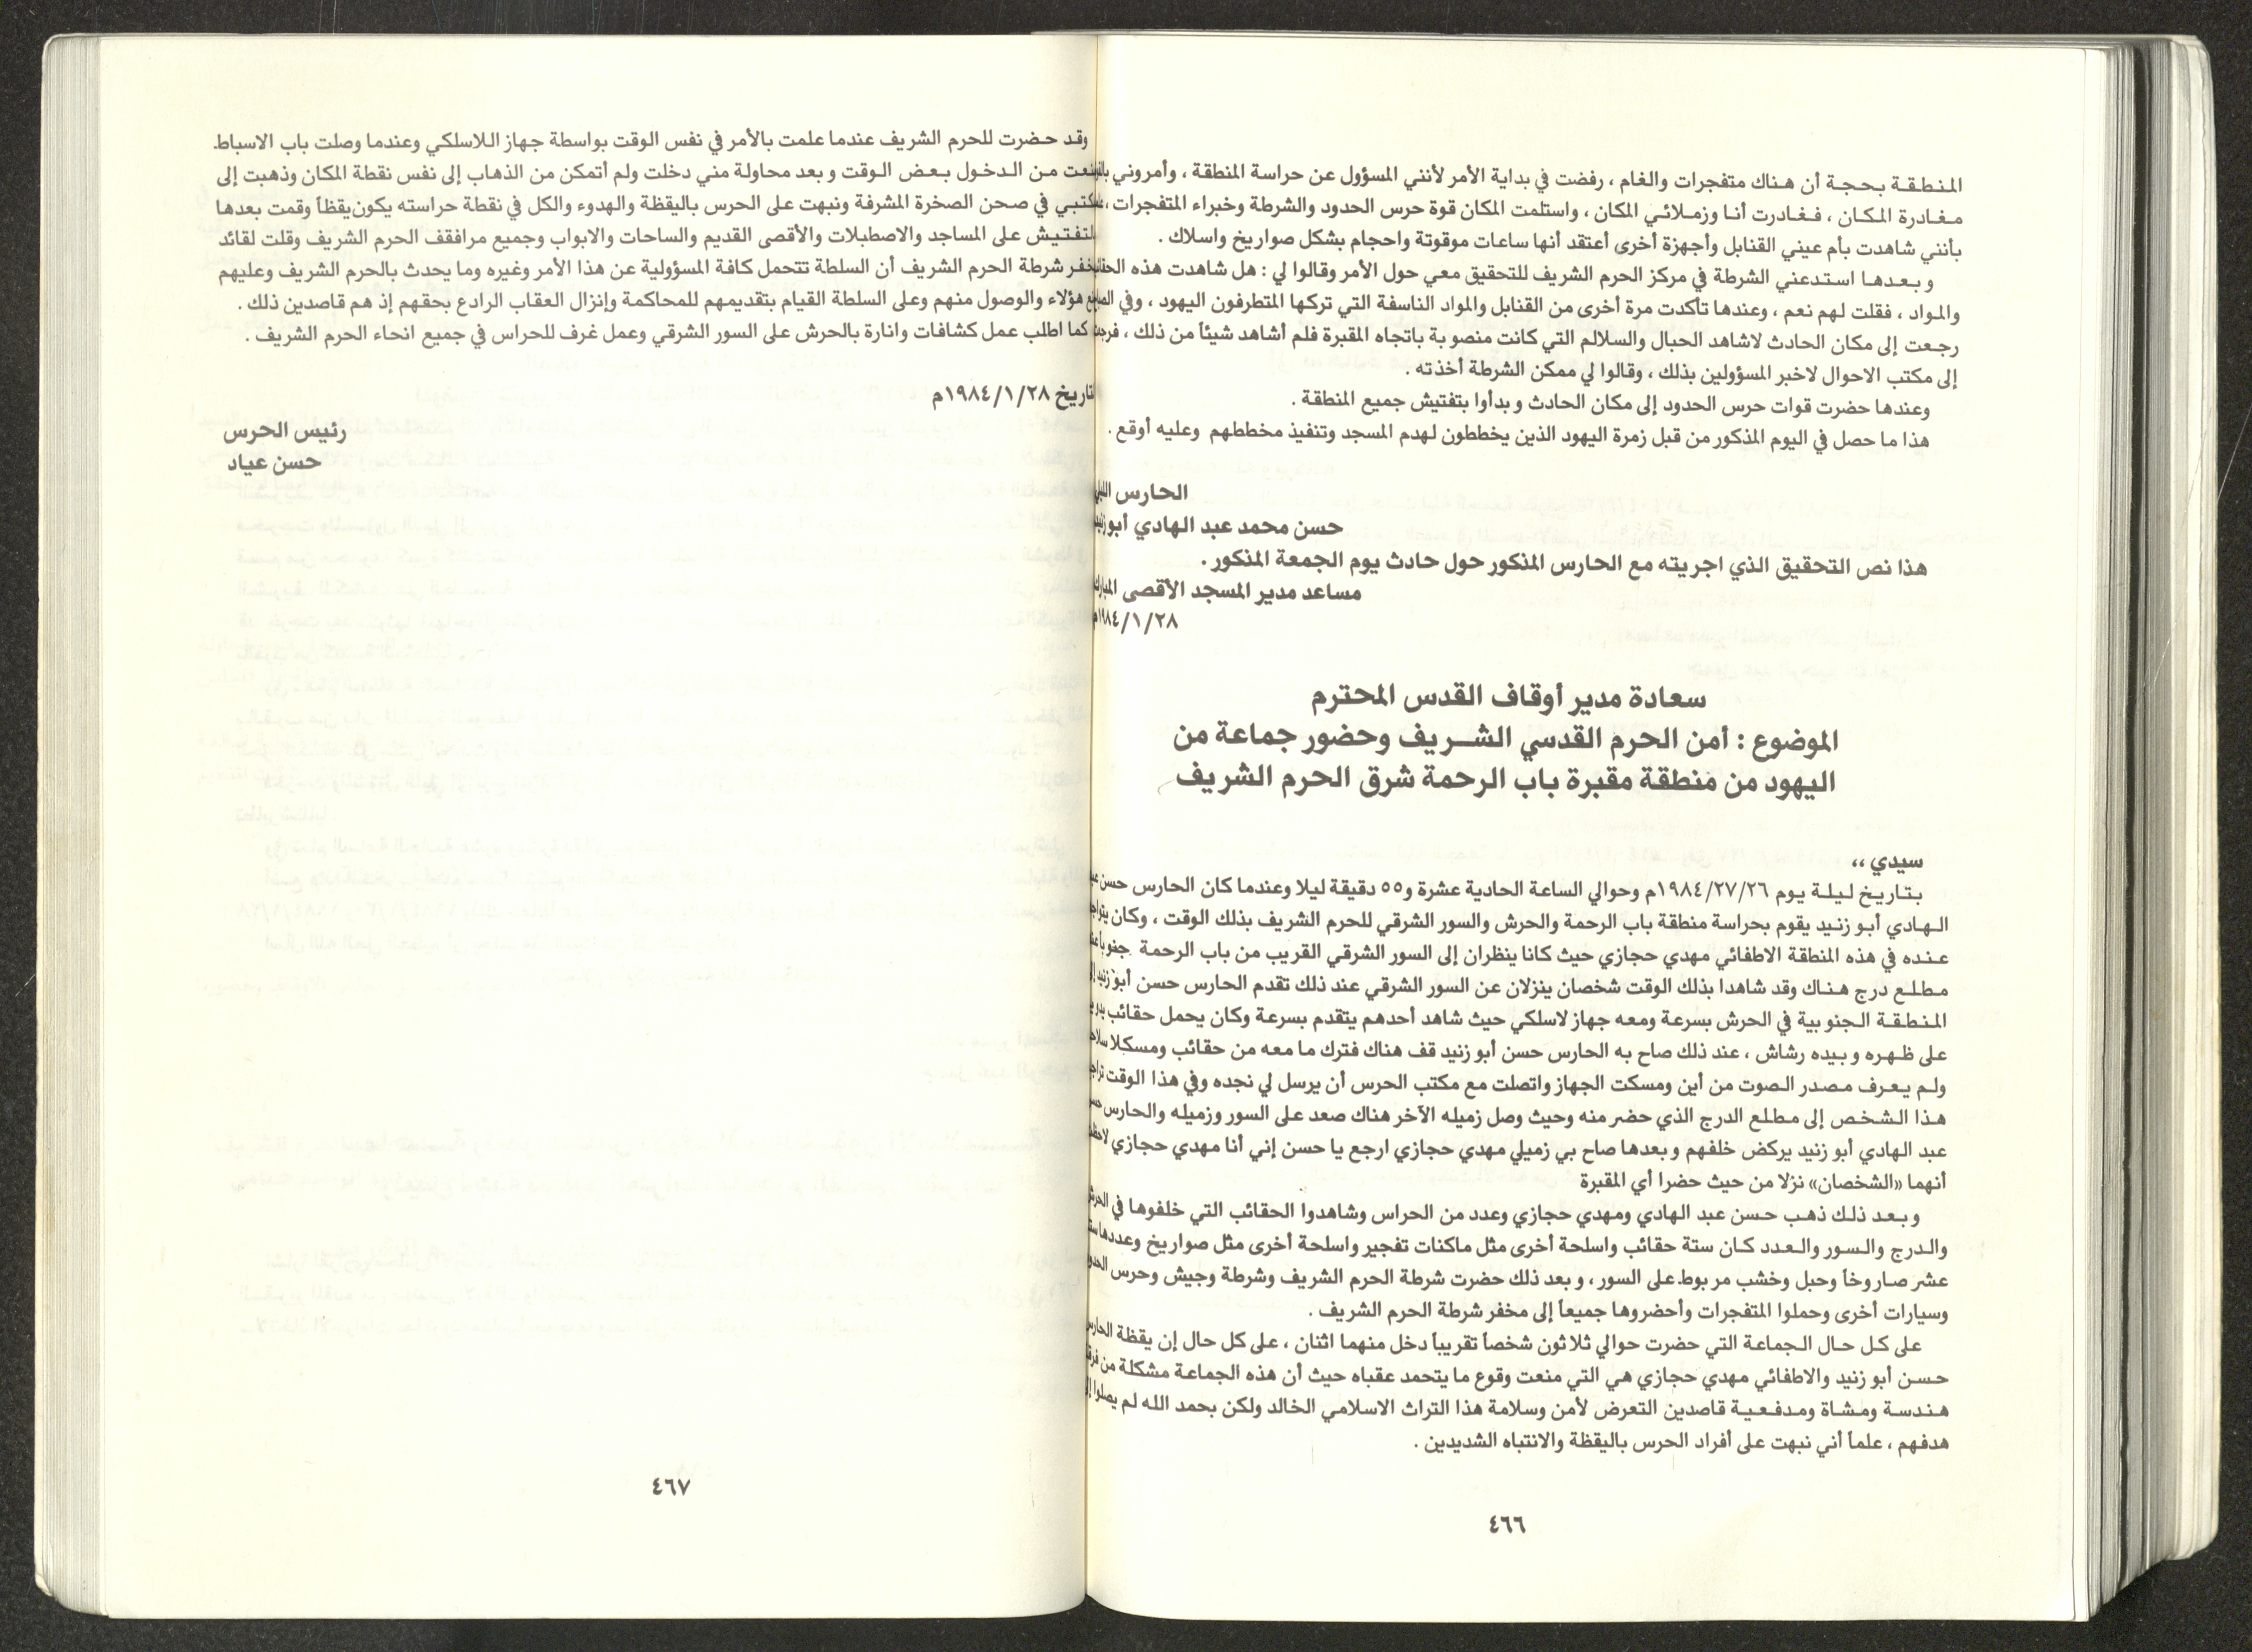 المنطقة بحجة أن هناك متفجرات والغام ، رفضت في بداية الأمر لأنني المسؤول عن حراسة المنطقة ، وأمروني
مغادرة المكان ، فغادرت أنا وزملائي المكان ، واستلمت المكان قوة حرس الحدود والشرطة وخبراء المتفجرات ،
بأنني شاهدت بأم عيني القنابل وأجهزة أخرى أعتقد أنها ساعات موقوتة واحجام بشكل صواريخ واسلاك .
وبعدها استدعني الشرطة في مركز الحرم الشريف للتحقيق معي حول الأمر وقالوا لي : هل شاهدت هذه
والمواد ، فقلت لهم نعم ، وعندها تأكدت مرة أخرى من القنابل والمواد الناسفة التي تركها المتطرفون اليهود ، وفي
رجعت إلى مكان الحادث لاشاهد الحبال والسلالم التي كانت منصوبة باتجاه المقبرة فلم أشاهد شيئاً من ذلك ،
إلى مكتب الاحوال لاخبر المسؤولين بذلك ، وقالوا لي ممكن الشرطة أخذته .
وعندها حضرت قوات حرس الحدود إلى مكان الحادث وبدأوا بتفتيش جميع المنطقة .
هذا ما حصل في اليوم المذكور من قبل زمرة اليهود الذين يخططون لهدم المسجد وتنفيذ مخططهم وعليه أوقع .
الحارس
حسن محمد عبد الهادي أبو زنيد
هذا نص التحقيق الذي اجريته مع الحارس المذكور حول حادث يوم الجمعة المذكور .
مساعد مدير المسجد الأقصى المبارك
١٩٨٤/١/٢٨م
سعادة مدير أوقاف القدس المحترم
الموضوع : أمن الحرم القدسي الشــريف وحضور جماعة من
اليهود من منطقة مقبرة باب الرحمة شرق الحرم الشريف
سيدي ،،
بتاريخ ليلة يوم ١٩٨٤/٢٧/٢٦م وحوالي الساعة الحادية عشرة و٥٥ دقيقة ليلا وعندما كان الحارس حسن
الهادي أبو زنيد يقوم بحراسة منطقة باب الرحمة والحرش والسور الشرقي للحرم الشريف بذلك الوقت ، وكان
عنده في هذه المنطقة الاطفائي مهدي حجازي حيث كانا ينظران إلى السور الشرقي القريب من باب الرحمة جنوباً
مطلع درج هناك وقد شاهدا بذلك الوقت شخصان ينزلان عن السور الشرقي عند ذلك تقدم الحارس حسن أبو زنيد
المنطقة الجنوبية في الحرش بسرعة ومعه جهاز لاسلكي حيث شاهد أحدهم يتقدم بسرعة وكان يحمل حقائب
على ظهره وبيده رشاش ، عند ذلك صاح به الحارس حسن أبو زنيد قف هناك فترك ما معه من حقائب ومسكلا
ولم يعرف مصدر الصوت من أين ومسكت الجهاز واتصلت مع مكتب الحرس أن يرسل لي نجده وفي هذا الوقت
هذا الشخص إلى مطلع الدرج الذي حضر منه وحيث وصل زميله الآخر هناك صعد على السور وزميله والحارس
عبد الهادي أبو زنيد يركض خلفهم وبعدها صاح بي زميلي مهدي حجازي ارجع يا حسن إني أنا مهدي حجازي
أنهما «الشخصان» نزلا من حيث حضرا أي المقبرة
وبعد ذلك ذهب حسن عبد الهادي ومهدي حجازي وعدد من الحراس وشاهدوا الحقائب التي خلفوها في
والدرج والسور والعدد كان ستة حقائب واسلحة أخرى مثل ماكنات تفجير واسلحة أخرى مثل صواريخ وعددها
عشر صاروخاً وحبل وخشب مربوط على السور ، وبعد ذلك حضرت شرطة الحرم الشريف وشرطة وجيش وحرس
وسيارات أخرى وحملوا المتفجرات وأحضروها جميعاً إلى مخفر شرطة الحرم الشريف .
على كل حال الجماعة التي حضرت حوالي ثلاثون شخصاً تقريباً دخل منهما اثنان ، على كل حال إن يقظة
حسن أبو زنيد والاطفائي مهدي حجازي هي التي منعت وقوع ما يتحمد عقباه حيث أن هذه الجماعة مشكلة من
هندسة ومشاة ومدفعية قاصدين التعرض لأمن وسلامة هذا التراث الاسلامي الخالد ولكن بحمد الله لم يصلوا
هدفهم ، علماً أني نبهت على أفراد الحرس باليقظة والانتباه الشديدين .
٤٦٦
وقد حضرت للحرم الشريف عندما علمت بالأمر في نفس الوقت بواسطة جهاز اللاسلكي وعندما وصلت باب الاسباط
من الدخول بعض الوقت وبعد محاولة مني دخلت ولم أتمكن من الذهاب إلى نفس نقطة المكان وذهبت إلى
مكتبي في صحن الصخرة المشرفة ونبهت على الحرس باليقظة والهدوء والكل في نقطة حراسته يكون يقظاً وقمت بعدها
لتفتيش على المساجد والاصطبلات والأقصى القديم والساحات والابواب وجميع مرافقف الحرم الشريف وقلت لقائد
مخفر شرطة الحرم الشريف أن السلطة تتحمل كافة المسؤولية عن هذا الأمر وغيره وما يحدث بالحرم الشريف وعليهم
هؤلاء والوصول منهم وعلى السلطة القيام بتقديمهم للمحاكمة وإنزال العقاب الرادع بحقهم إذ هم قاصدين ذلك .
كما اطلب عمل كشافات وانارة بالحرش على السور الشرقي وعمل غرف للحراس في جميع انحاء الحرم الشريف .
تاريخ ١٩٨٤/١/٢٨م
رئيس الحرس
حسن عياد
٤٦٧